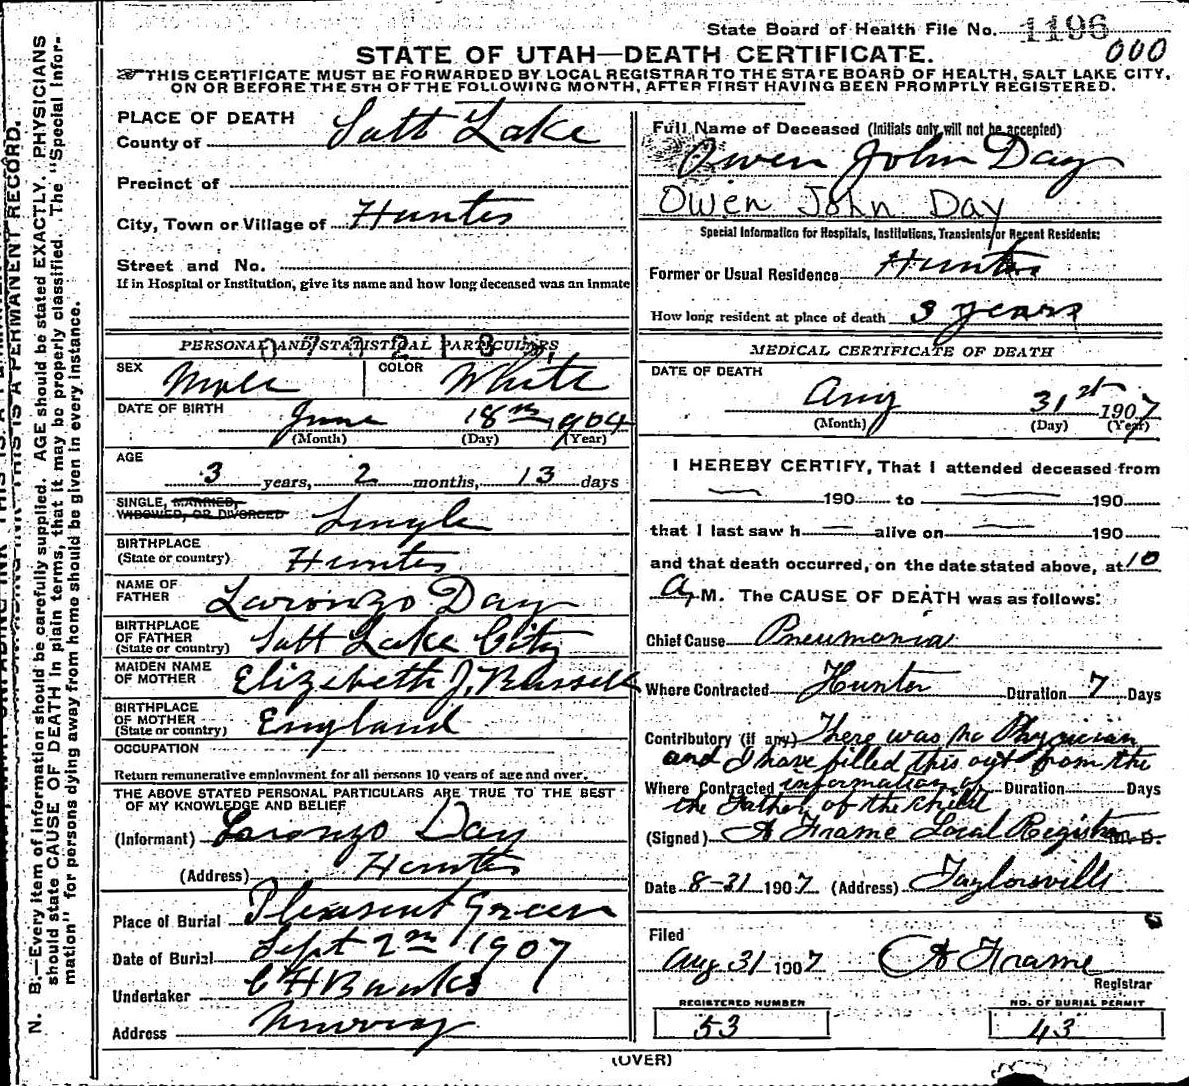 State Board of Health File No. 1196
000
STATE OF UTAH—DEATH CERTIFICATE.
THIS CERTIFICATE MUST BE FORWARDED BY LOCAL REGISTRAR TO THE STATE BOARD OF HEALTH, SALT LAKE CITY,
ON OR BEFORE THE 5TH OF THE FOLLOWING MONTH, AFTER FIRST HAVING BEEN PROMPTLY REGISTERED.
N. B.—Every item of information should be carefully supplied. AGE should be stated EXACTLY. PHYSICIANS
should state CAUSE OF DEATH in plain terms, that it may be properly classified. The "Special Infor-
mation" for persons dying away from home should be given in every instance.
THIS IS A PERMANENT RECORD.
PLACE OF DEATH
County of Salt Lake
Precinct of
City, Town or Village of Hunter
Street and No.
If in Hospital or Institution, give its name and how long deceased was an inmate
PERSONAL AND STATISTICAL PARTICULARS,
SEX Male COLOR White
DATE OF BIRTH June 18th 1904
(Month) (Day) (Year)
AGE
3 years, 2 months, 13 days
SINGLE, MARRIED,
WIDOWED, OR DIVORCED Single
BIRTHPLACE
(State or country) Hunter
NAME OF
FATHER Laronzo Day
BIRTHPLACE
OF FATHER
(State or country) Salt Lake City
MAIDEN NAME
OF MOTHER Elizebeth J. Russell
BIRTHPLACE
OF MOTHER
(State or country) England
OCCUPATION
Return remunerative employment for all persons 10 years of age and over.
THE ABOVE STATED PERSONAL PARTICULARS ARE TRUE TO THE BEST
OF MY KNOWLEDGE AND BELIEF
(Informant) Loronzo Day
(Address) Hunter
Place of Burial Pleasent Green
Date of Burial Sept 2nd 1907
Undertaker C H Banks
Address Murray
Full Name of Deceased (Initials only will not be accepted)
Owen John Day
Owen John Day
Special Information for Hospitals, Institutions, Transients, or Recent Residents:
Former or Usual Residence Hunter
How long resident at place of death 3 years
MEDICAL CERTIFICATE OF DEATH
DATE OF DEATH
Aug 31st 1907
(Month) (Day) (Year)
I HEREBY CERTIFY, That I attended deceased from
190 to 190
that I last saw h alive on 190
and that death occurred, on the date stated above, at 10
A, M. The CAUSE OF DEATH was as follows:
Chief Cause Pneumonia
Where Contracted Hunter Duration 7 Days
Contributory (if any) There was no Physician
and I have filled this out from the
Where Contracted information of Duration Days
the Father of the child
(Signed) A Frame Local Registrar M. D.
Date 8-31 1907 (Address) Taylorsville
Filed
Aug 31 1907 A Frame
Registrar
REGISTERED NUMBER
53
NO. OF BURIAL PERMIT
43
(OVER)